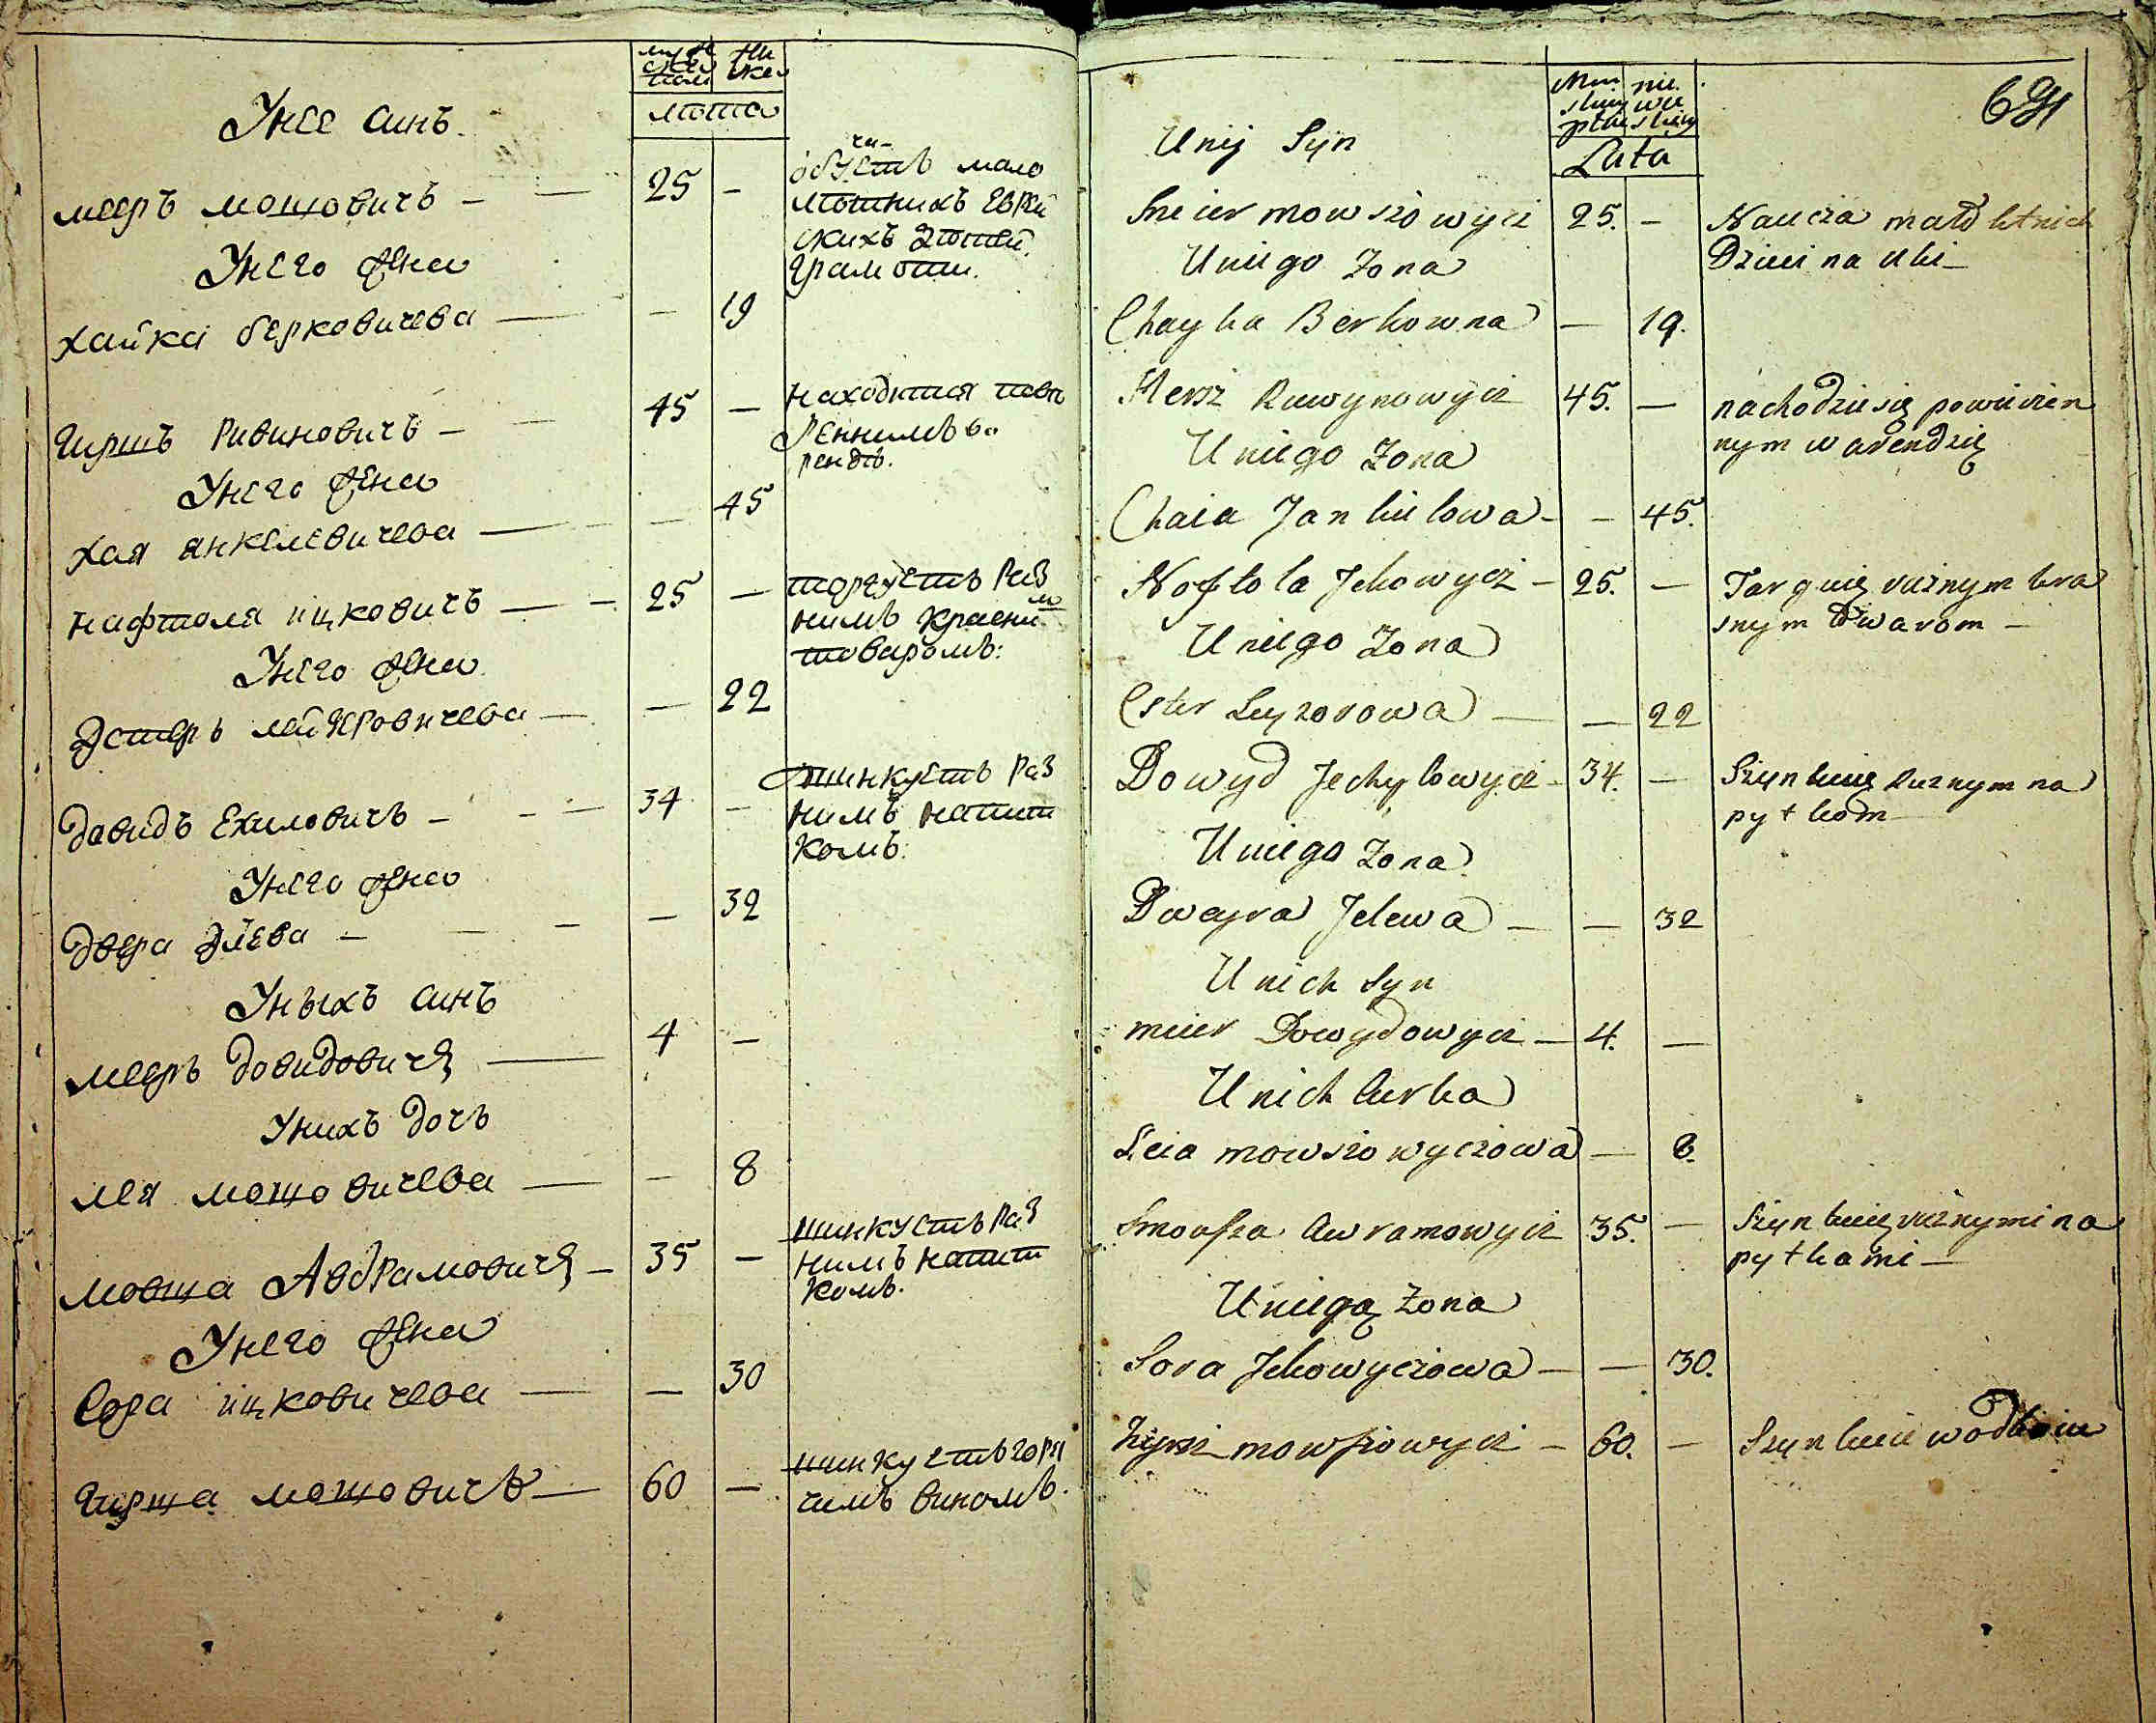 Унее синъ.
мужескъ
женскъ
лѣта
мееръ мошовичъ — 25 —
обучаетъ мало
лѣтнихъ еврей
скихъ дѣтей
грамоти.
Унего жена
хайка берковичева — — 19
гиршъ Ривиновичъ — 45 —
находится повѣ
реннимъ в а
рендѣ.
Унего жена
хая янкелевичева — — 45
нафтоля ицковичъ — 25 —
торгуетъ Раз
нимъ красни
товаромъ:
Унего жена
Эстеръ лейзеровичева — — 22
давидъ Ехиловичъ — 34 —
шинкуетъ Раз
нимъ напит
комъ:
Унего жена
двера Элева — — 32
Унихъ синъ
мееръ довидовичъ — 4 —
Унихъ дочъ
лея мошовичева — — 8
мовша Авбрамовичъ — 35 —
шинкуетъ Раз
нимъ напит
комъ.
Унего жена
Сора ицковичева — — 30
гирша мошовичъ — 60 —
шинкуетъ горя
чимъ виномъ.
69
Unij Syn
Lata
Smeier mowszowycz 25. — Naucza mało letnich
Dzieci na
Uniego Zona
Chayka Berkowna — 19.
Hersz Ruwynowycz 45. — nachodzie się powieżen
nym w arendzię
Uniego Zona
Chaia Jankielowa — — 45.
Noftola Jckowycz — 25. — Targuię rużnym kra
snym towarom —
Uniego Zona
Ester Leyzorowa — — 22
Dowyd Jechylowycz — 34. — Szynkuię Rużnym na
pytkom —
Uniego Zona
Dweyra Jelewa — — 32
Unich Syn
meier Dowydowycz — 4. —
Unich Curka
Leia mowszowyczowa — 8.
Smowsza Awramowycz 35. — Szynkuię rużnymi na
pytkami —
Uniegą Zona
Sora Jckowyczowa — — 30.
mowszowycz — 60. — Szynkuie wodkoiu